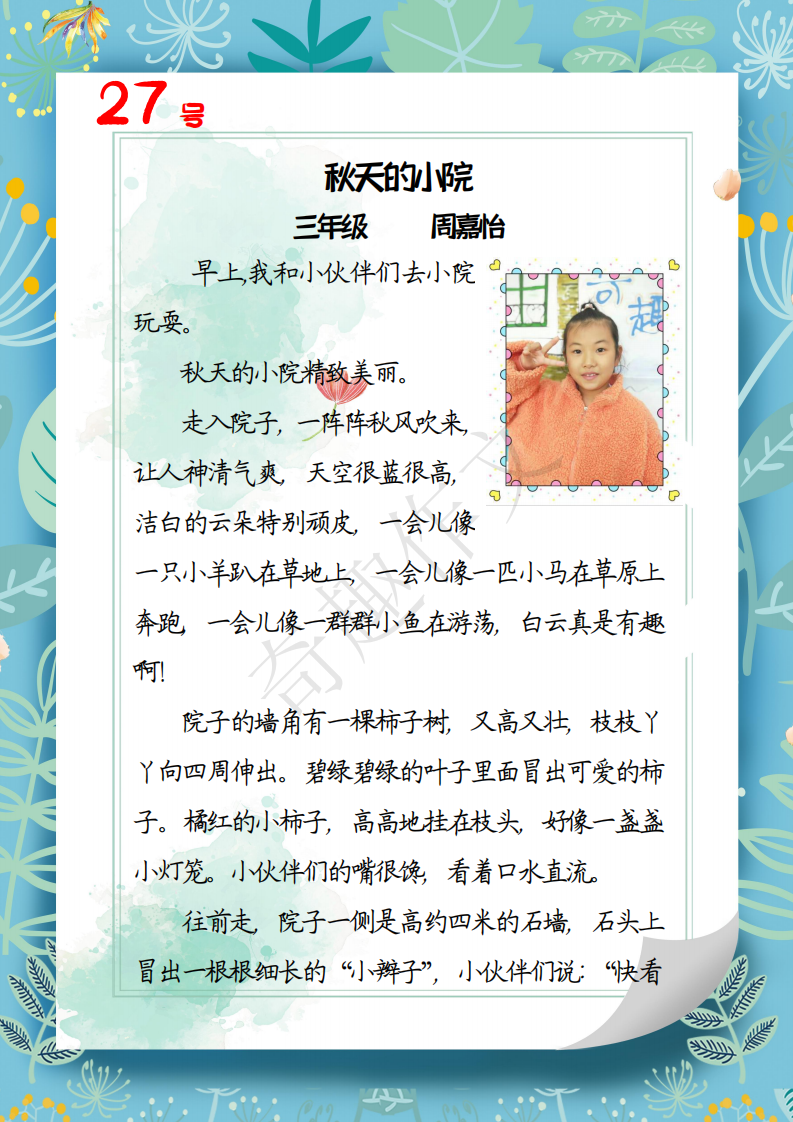 27号
秋天的小院
三年级 周嘉怡
早上,我和小伙伴们去小院
玩耍。
秋天的小院精致美丽。
走入院子，一阵阵秋风吹来，
让人神清气爽，天空很蓝很高，
洁白的云朵特别顽皮，一会儿像
一只小羊趴在草地上，一会儿像一匹小马在草原上
奔跑，一会儿像一群群小鱼在游荡，白云真是有趣
啊！
院子的墙角有一棵柿子树，又高又壮，枝枝丫
丫向四周伸出。碧绿碧绿的叶子里面冒出可爱的柿
子。橘红的小柿子，高高地挂在枝头，好像一盏盏
小灯笼。小伙伴们的嘴很馋，看着口水直流。
往前走，院子一侧是高约四米的石墙，石头上
冒出一根根细长的“小辫子”，小伙伴们说：“快看
奇趣作文
奇趣